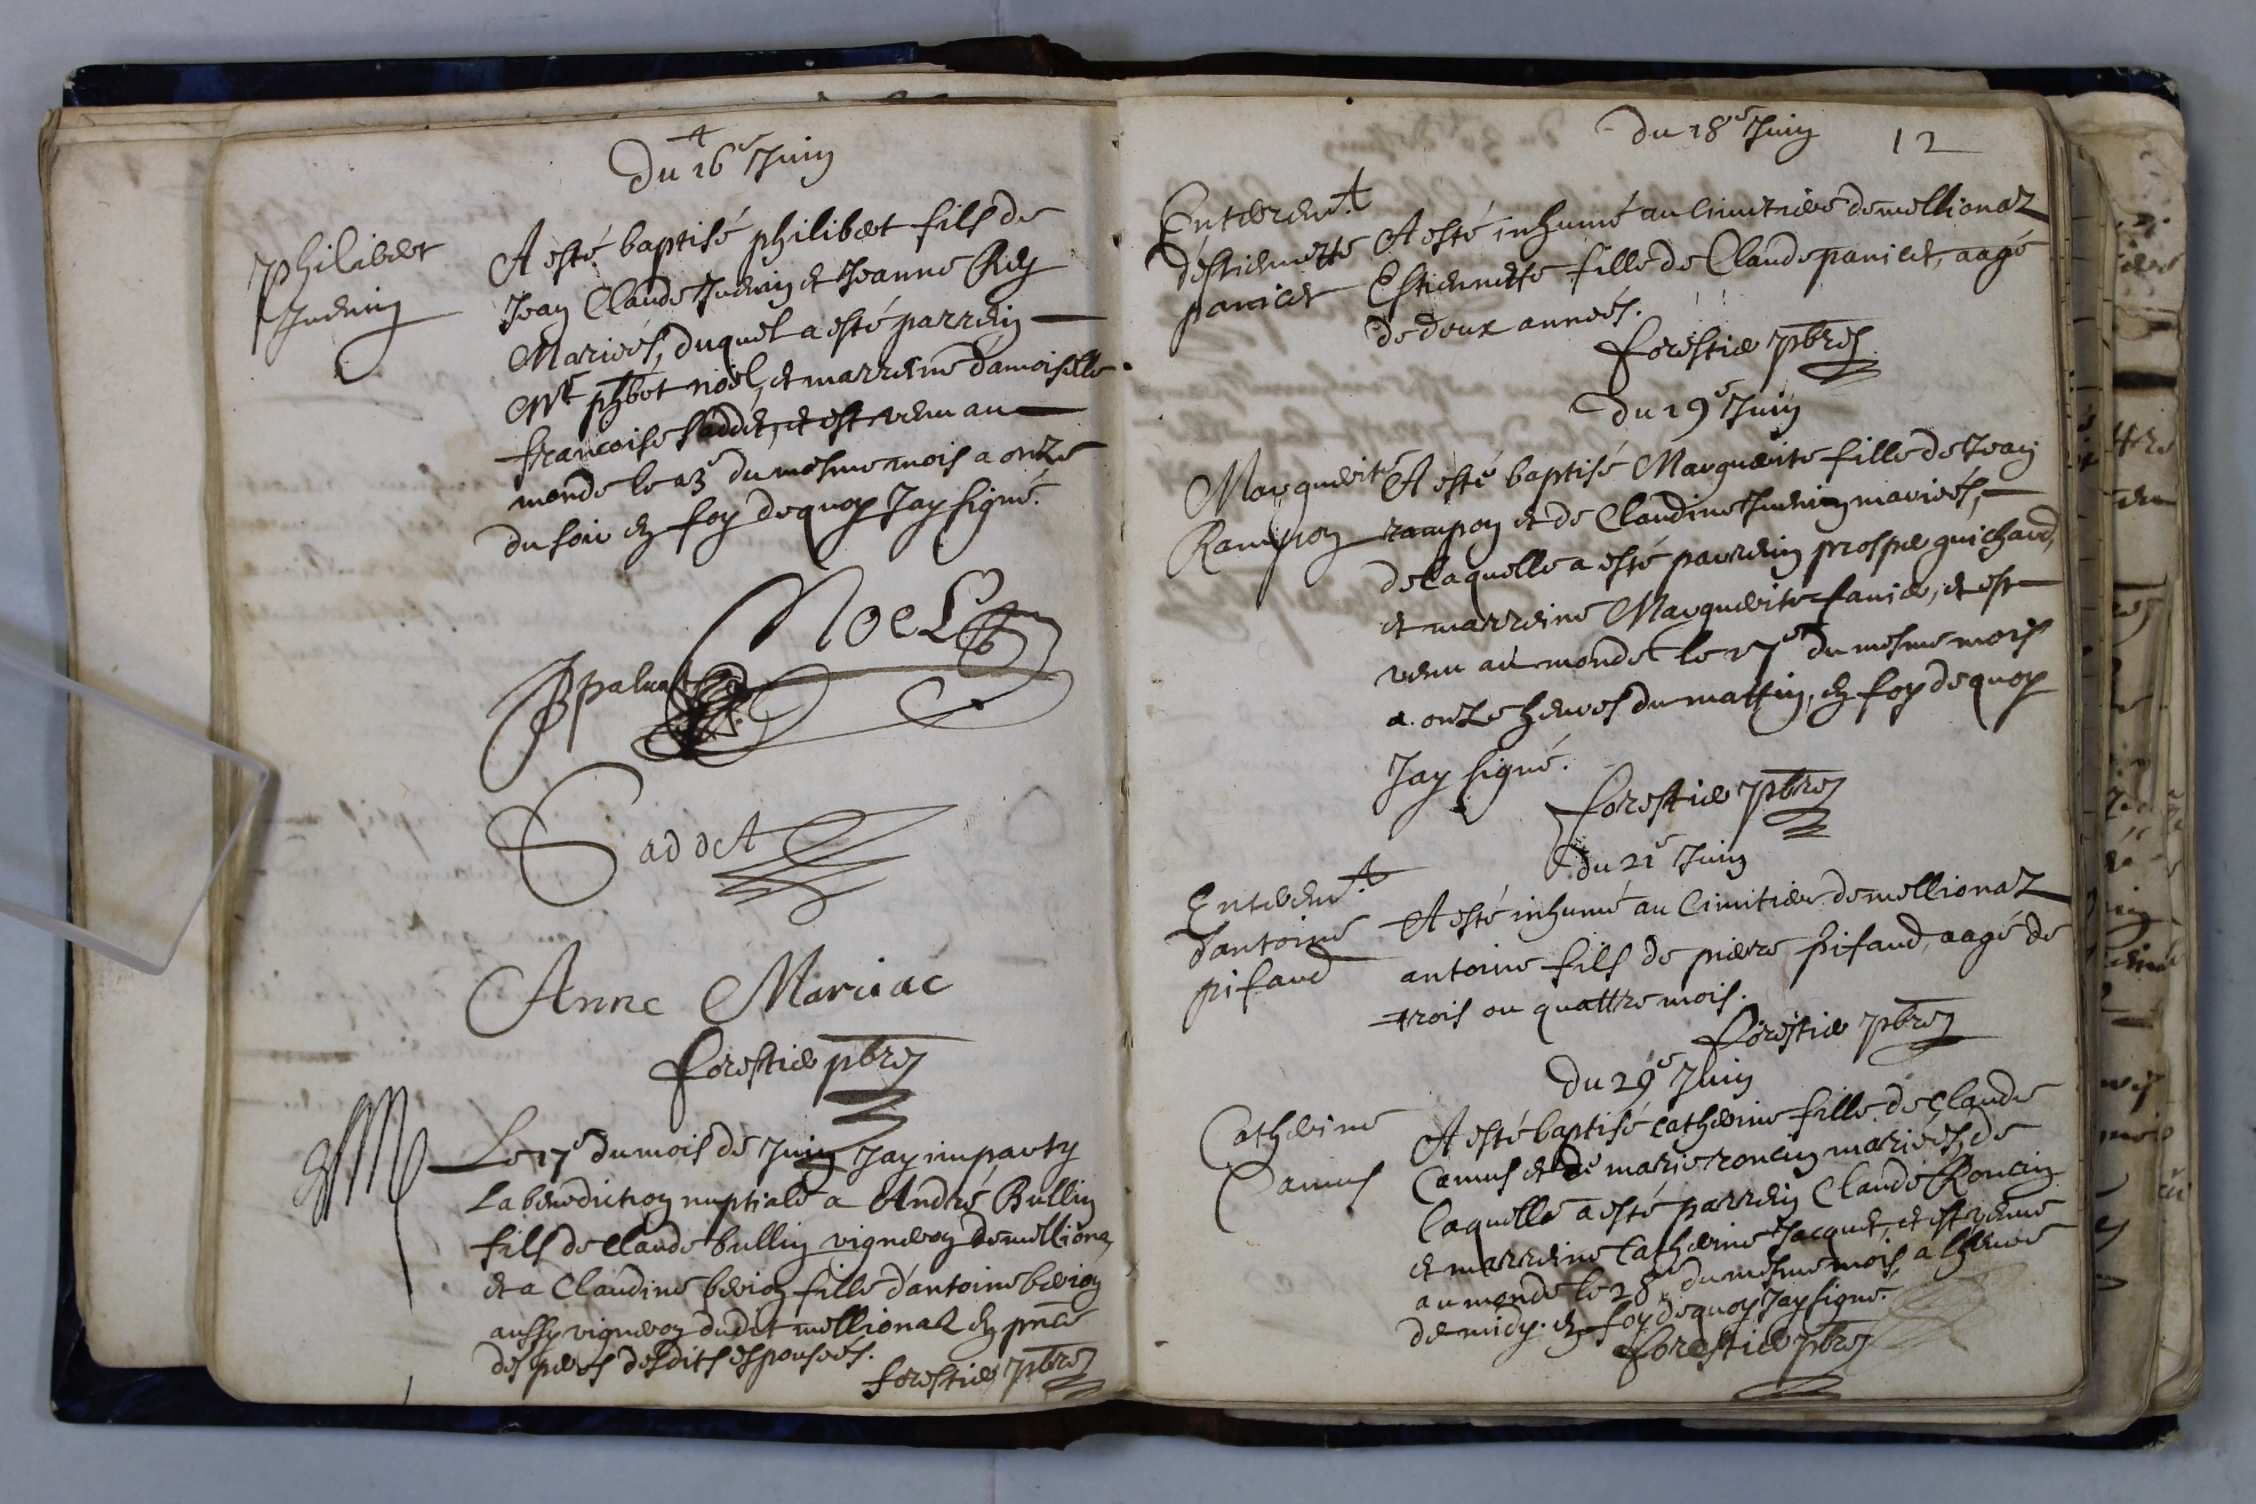 Du 16e Juin
Philibert
Juenin
A esté baptisé philibert fils de
Jean Claude Juenin et Jeanne Rey
Mariés, duquel a esté parrein
Mre phbert noël, et marreine damoiselle
françoise Saddet, et est venu au
monde le 13e du mesme mois a onze
du soir en foy dequoy Jay signé.
Noel
Saddet
Anne Mariac
forestier pbre
Le 17e du mois de Juin Jay imparty
La benediction nuptiale a André Bullin
fils de Claude bullin vigneron de mellionaz
et a Claudine berion fille d'antoine berion
aussy vigneron dudit mellionaz en pnce
des peres desdits espousees.
forestier pbre
12
Du 18e Juin
Enterremt
d'estiennette
panicet
A esté inhumé au Cimitiere de mellionaz
Estiennette fille de Claude panicet, aagé
de deux années.
forestier pbre
Du 19e Juin
Marguerite
Rampon
A esté baptisé Marguerite fille de Jean
rampon et de Claudine Juenin mariés,
de laquelle a esté parrein prosper guichard,
et marreine Marguerite favier, et est
venu au monde le 17e du mesme mois
a onze heures du mattin, en foy dequoy
Jay signé.
forestier pbre
Du 21e Juin
Enterremt
d'antoine
pifaud
A esté inhumé au Cimitiere de mellionaz
antoine fils de pierre pifaud, aagé de
trois ou quattre mois.
forestier pbre
Du 29e Juin
Catherine
Camus
A esté baptisé catherine fille de Claude
Camus et de marie roncin mariés, de
laquelle a esté parrein Claude Roncin
et marreine Catherine Jacquet, et est venue
au monde le 28e du mesme mois a lheure
de midy. en foy dequoy Jay signé.
forestier pbre